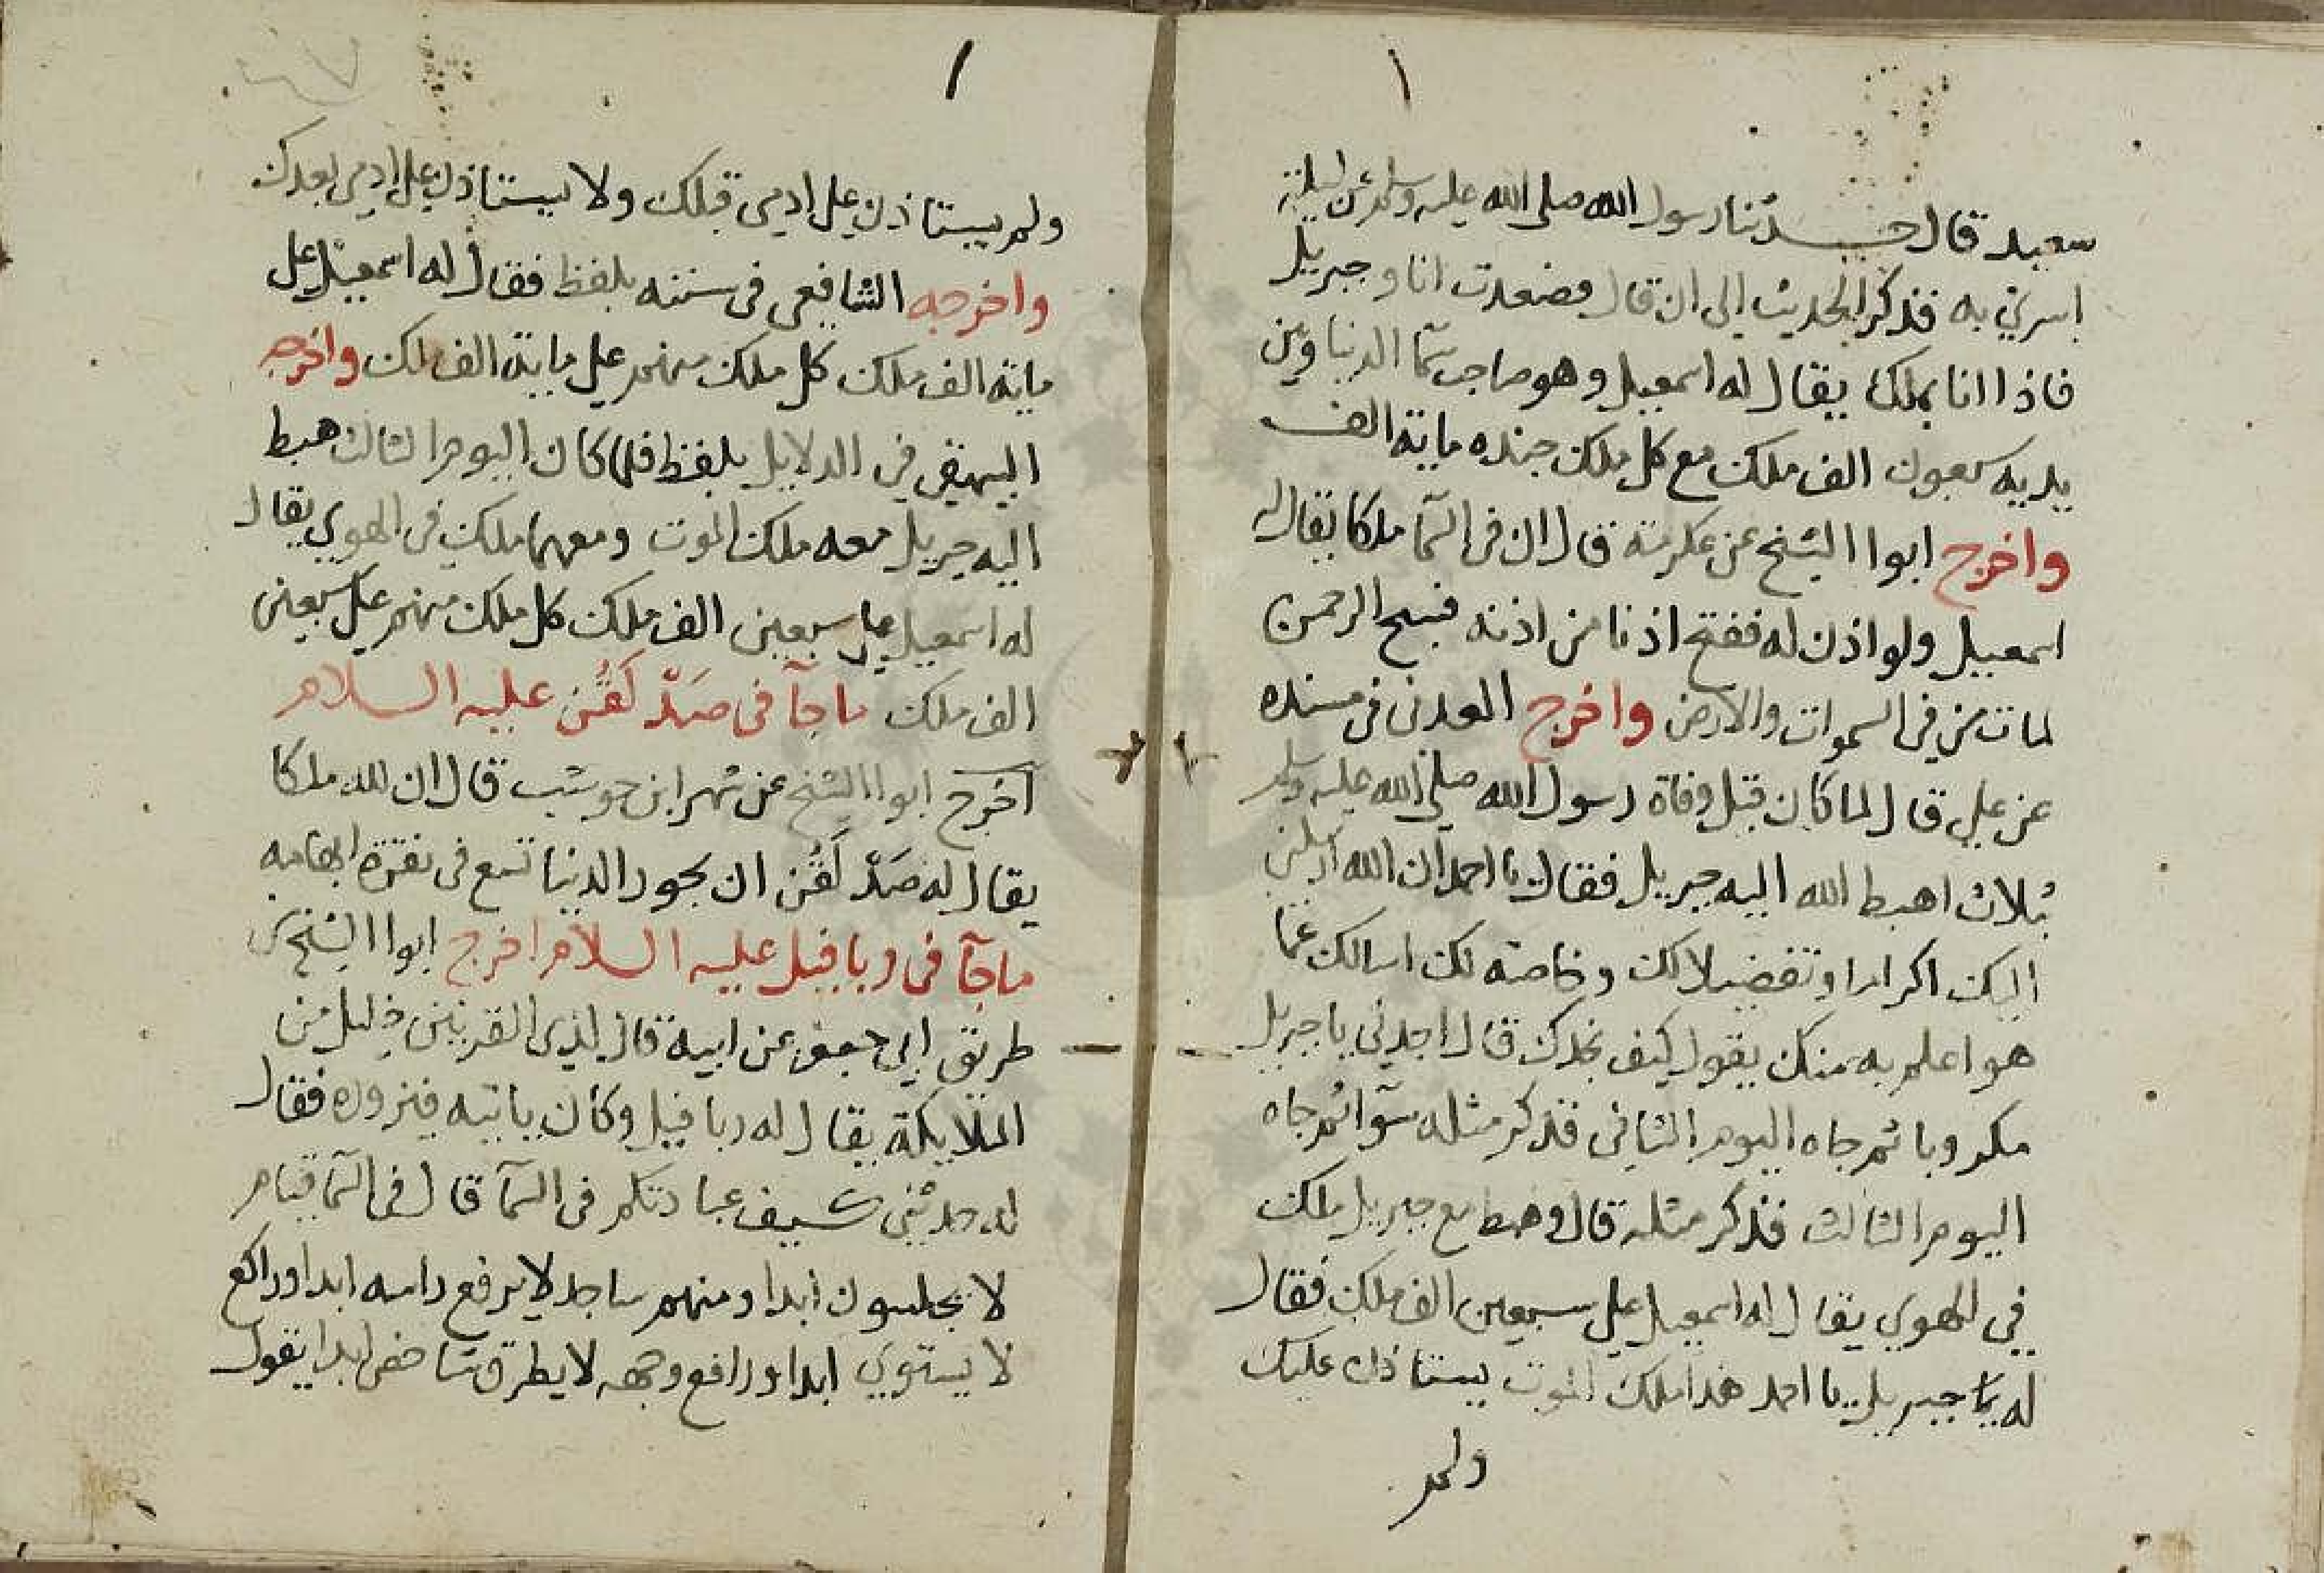 ١
سعيد قال حدثنا رسول الله صلى الله عليه وسلم عن ليلة
اسري به فذكر الحديث الى ان قال فصعدت انا وجبريل
فاذا انا بملك يقال له اسمعيل وهو صاحب سما الدنيا وبين
يديه سبعون الف ملك مع كل ملك جنده ماية الف
واخرج ابوا الشيخ عن عكرمة قال ان في السما ملكا يقال له
اسمعيل ولو اذن له ففتح اذنا من اذنه فسبح الرحمن
لمات من في السموات والارض واخرج العدنى فى مسنده
عن علي قال لما كان قبل وفاة رسول الله صلى الله عليه وسلم
بثلاث اهبط الله اليه جبريل فقال يا احمد ان الله ارسلني
اليك اكراما وتفضيلا لك وخاصة لك اسالك عما
هو اعلم به منك يقول كيف تجدك قال اجدني يا جبريل
مكروبا ثم جاه اليوم الثاني فذكر مثله سوآ ثم جاه
اليوم الثالث فذكر مثله قال وهبط مع جبريل ملك
في الهوي يقال له اسمعيل على سبعين الف ملك فقال
له جبريل يا احمد هذا ملك الموت يستاذن عليك
ولم
١
ولم يستاذن على ادمى قبلك ولا يستاذن على ادمى بعدك
واخرجه الشافعى فى سننه بلفظ فقال له اسمعيل على
ماية الف ملك كل ملك منهم على ماية الف ملك واخرجه
البيهقى في الدلايل بلفظ فلما كان اليوم الثالث هبط
اليه جبريل معه ملك الموت ومعهما ملك فى الهوي يقال
له اسمعيل على سبعين الف ملك كل ملك منهم على سبعين
الف ملك ماجآ فى صَدْ لَقُن عليه السلام
آخرج ابوا الشيخ عن شهر ابن حوشب قال ان لله ملكا
يقال له صَدْ لَقُن ان بحور الدنيا تسع فى نقرة ابهامه
ماجآ فى ربافيل عليه السلام اخرج ابوا الشيخ من
طريق ابي جعفر عن ابيه قال لذى القرنين خليل من
الملايكة يقال له ربافيل وكان ياتيه فيزوره فقال
له حدثنى كيف عبادتكم فى السمآ قال فى السما قيام
لا يجلسون ابدا ومنهم ساجد لا يرفع راسه ابدا وراكع
لا يستوي ابدا ورافع وجهه لا يطرق شاخص ابدا يقول